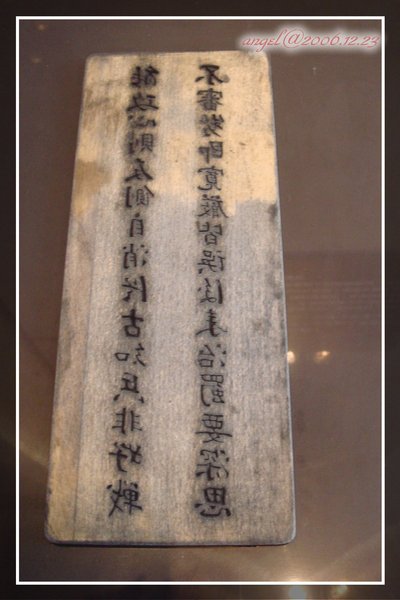 angel@2006.12.23
能攻心則反側自消從古知兵非好戰
不審勢即寬嚴皆誤後來治蜀要深思